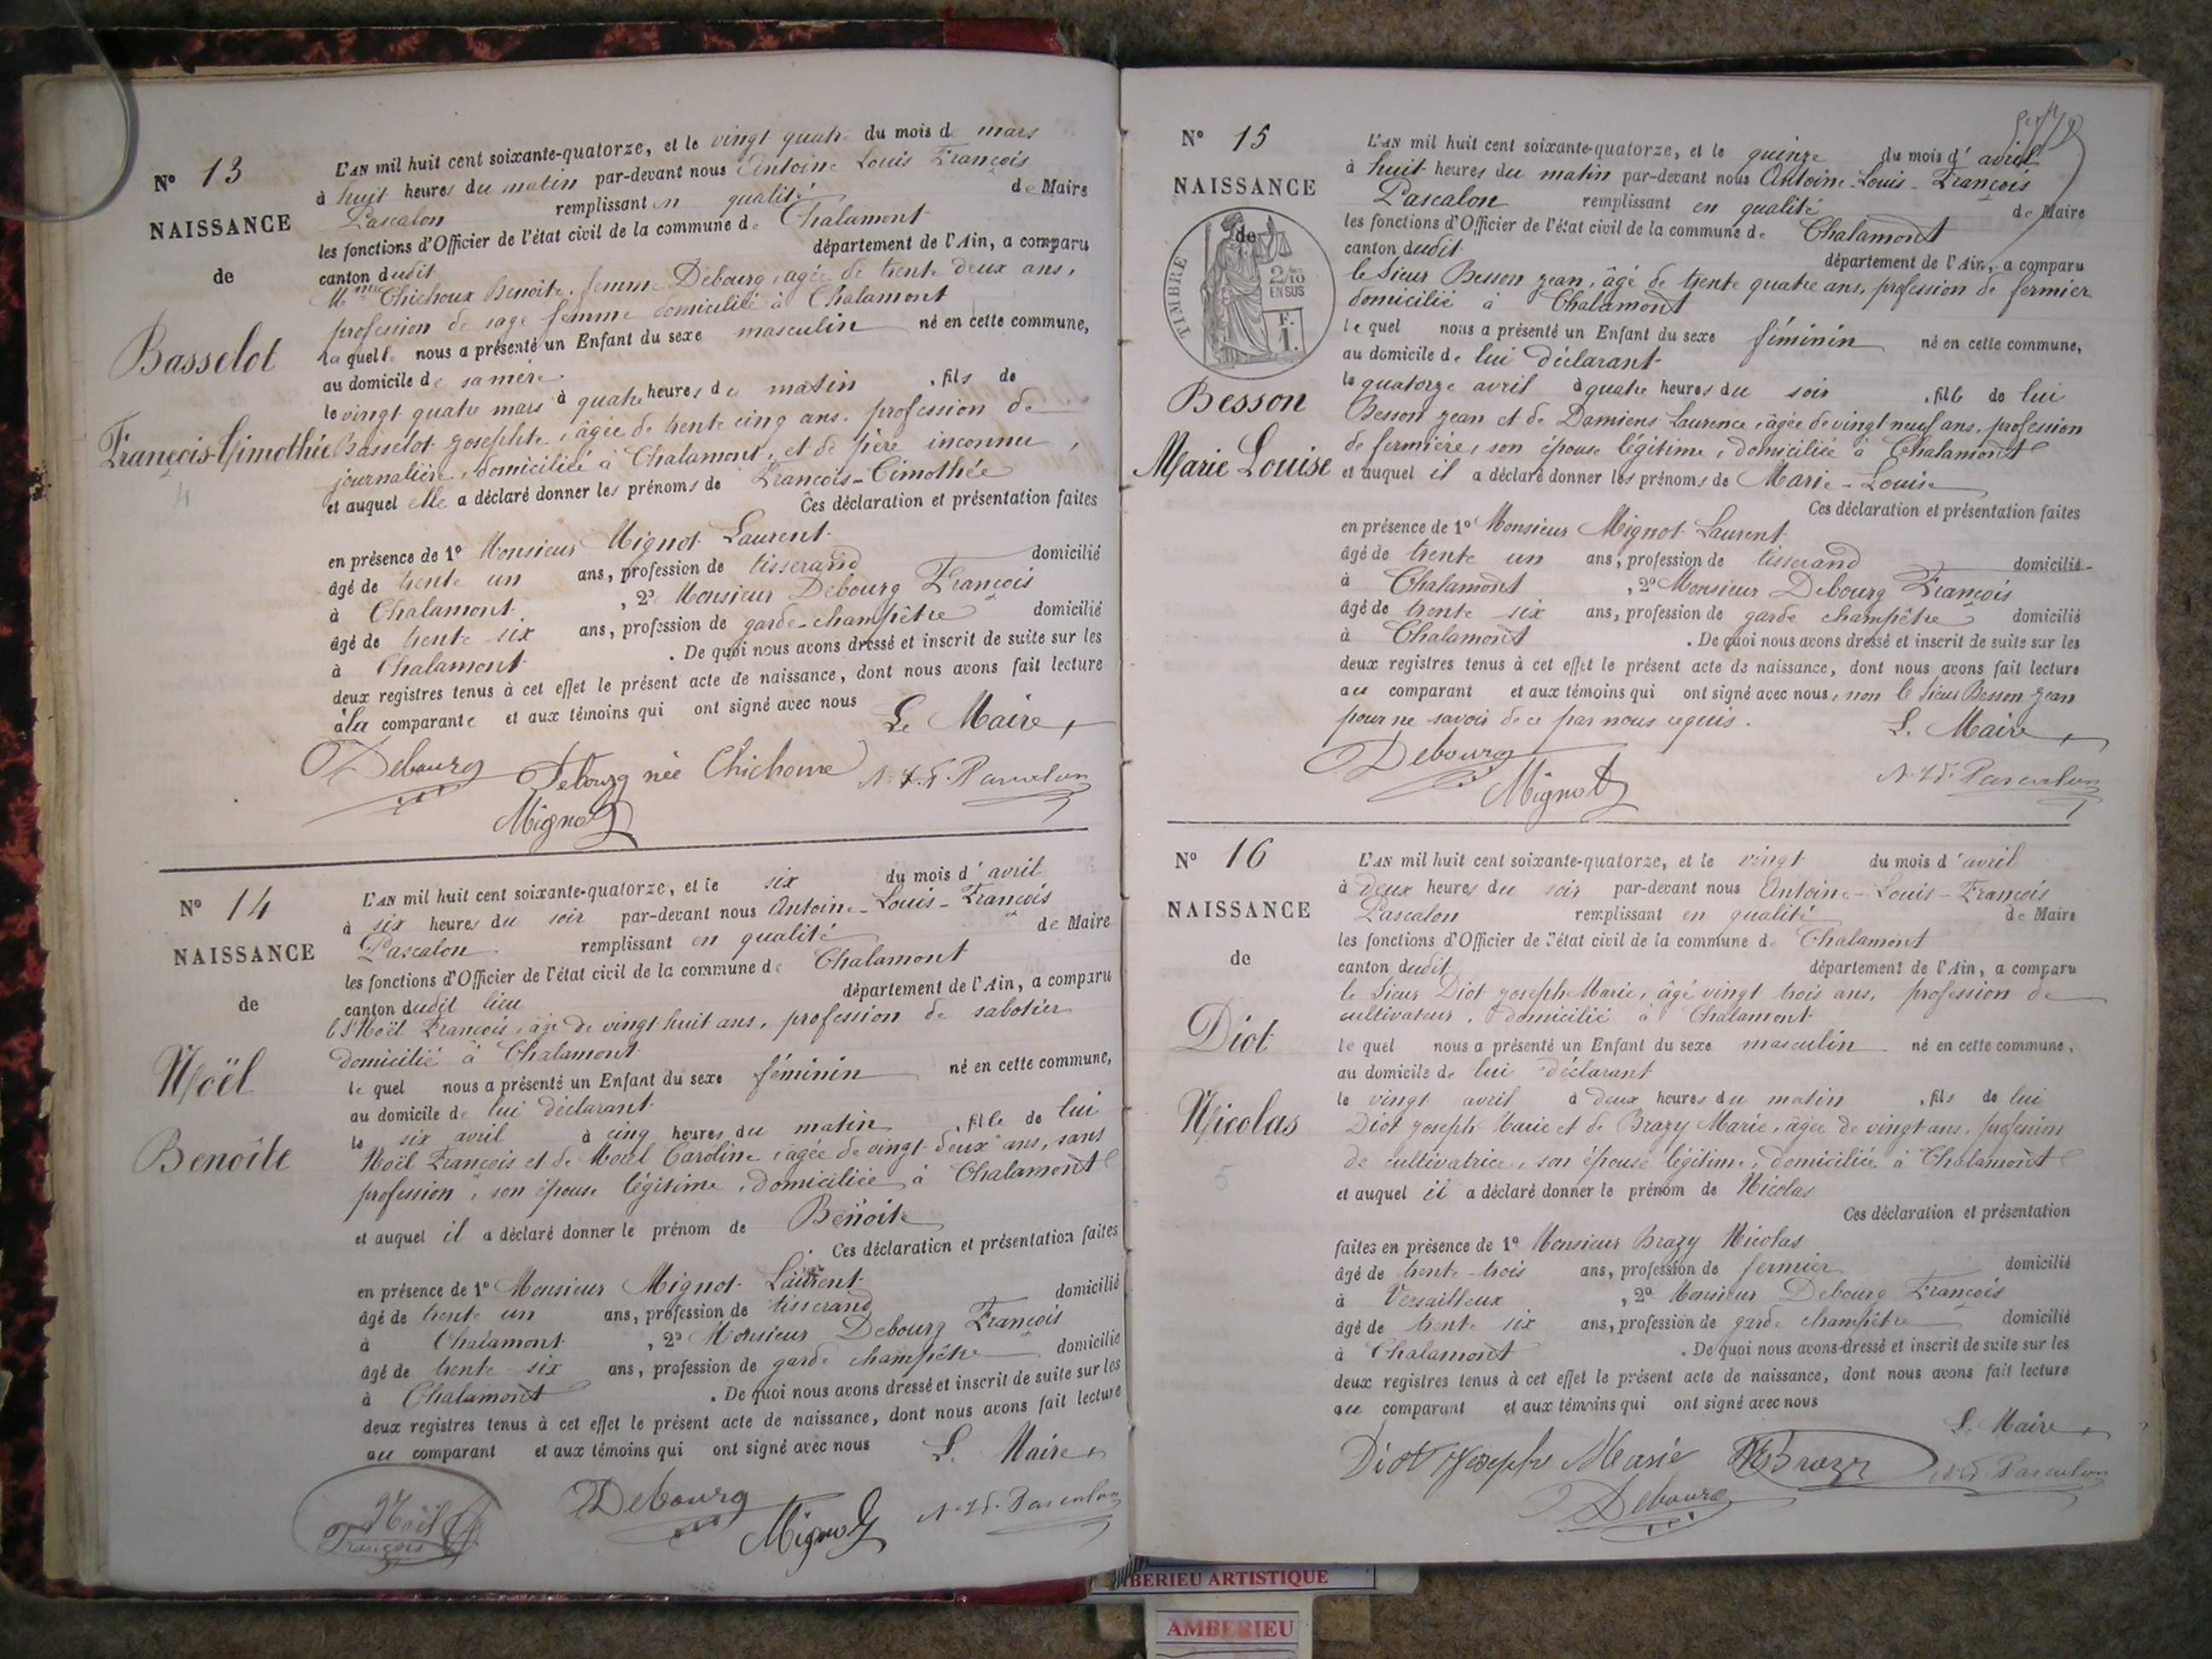 N° 13
NAISSANCE
de
Basselot
François-Timothée
L'AN mil huit cent soixante-quatorze, et le vingt quatre du mois de mars
à huit heures du matin par-devant nous Antoine Louis François
Pascalon remplissant en qualité de Maire
les fonctions d'Officier de l'état civil de la commune de Chalamont
canton dudit département de l'Ain, a comparu
Mme Chichoux Benoite, femme Debourg, agée de trente deux ans,
profession de sage femme domiciliée à Chalamont
laquelle nous a présenté un Enfant du sexe masculin né en cette commune,
au domicile de sa mère
le vingt quatre mars à quatre heures du matin , fils de
Basselot Josephte, âgée de trente cinq ans, profession de
journalière, domiciliée à Chalamont, et de père inconnu,
et auquel elle a déclaré donner les prénoms de François-Timothée
Ces déclaration et présentation faites
en présence de 1° Monsieur Mignot Laurent
âgé de trente un ans, profession de tisserand domicilié
à Chalamont , 2° Monsieur Debourg François
âgé de trente six ans, profession de garde-champêtre domicilié
à Chalamont . De quoi nous avons dressé et inscrit de suite sur les
deux registres tenus à cet effet le présent acte de naissance, dont nous avons fait lecture
à la comparante et aux témoins qui ont signé avec nous Le Maire,
Debourg Debourg née Chichoux Pascalon
Mignot
N° 14
NAISSANCE
de
Noël
Benoîte
L'AN mil huit cent soixante-quatorze, et le six du mois d'avril
à six heures du soir par-devant nous Antoine-Louis-François
Pascalon remplissant en qualité de Maire
les fonctions d'Officier de l'état civil de la commune de Chalamont
canton dudit lieu département de l'Ain, a comparu
le Sr Noël François, âgé de vingt huit ans, profession de sabotier
domicilié à Chalamont
lequel nous a présenté un Enfant du sexe féminin né en cette commune,
au domicile de lui déclarant
le six avril à cinq heures du matin , fille de lui
Noël François et de Morel Caroline, âgée de vingt deux ans, sans
profession, son épouse légitime, domiciliée à Chalamont
et auquel il a déclaré donner le prénom de Benoîte
Ces déclaration et présentation faites
en présence de 1° Monsieur Mignot Laurent
âgé de trente un ans, profession de tisserand domicilié
à Chalamont , 2° Monsieur Debourg François
âgé de trente six ans, profession de garde champêtre domicilié
à Chalamont . De quoi nous avons dressé et inscrit de suite sur les
deux registres tenus à cet effet le présent acte de naissance, dont nous avons fait lecture
au comparant et aux témoins qui ont signé avec nous Le Maire,
Noël François Debourg Mignot Pascalon
N° 15
NAISSANCE
de
TIMBRE
2/10 EN SUS
F. 1.
Besson
Marie Louise
L'AN mil huit cent soixante-quatorze, et le quinze du mois d'avril
à huit heures du matin par-devant nous Antoine-Louis-François
Pascalon remplissant en qualité de Maire
les fonctions d'Officier de l'état civil de la commune de Chalamont
canton dudit département de l'Ain, a comparu
le Sieur Besson Jean, âgé de trente quatre ans, profession de fermier
domicilié à Chalamont
lequel nous a présenté un Enfant du sexe féminin né en cette commune,
au domicile de lui déclarant
le quatorze avril à quatre heures du soir , fille de lui
Besson Jean et de Damiens Laurence, âgée de vingt neuf ans, profession
de fermière, son épouse légitime, domiciliée à Chalamont
et auquel il a déclaré donner les prénoms de Marie-Louise
Ces déclaration et présentation faites
en présence de 1° Monsieur Mignot Laurent
âgé de trente un ans, profession de tisserand domicilié
à Chalamont , 2° Monsieur Debourg François
âgé de trente six ans, profession de garde champêtre domicilié
à Chalamont . De quoi nous avons dressé et inscrit de suite sur les
deux registres tenus à cet effet le présent acte de naissance, dont nous avons fait lecture
au comparant et aux témoins qui ont signé avec nous, non le Sieur Besson Jean
pour ne savoir de ce par nous requis. Le Maire,
Debourg Mignot Pascalon
N° 16
NAISSANCE
de
Diot
Nicolas
5
L'AN mil huit cent soixante-quatorze, et le vingt du mois d'avril
à deux heures du soir par-devant nous Antoine-Louis-François
Pascalon remplissant en qualité de Maire
les fonctions d'Officier de l'état civil de la commune de Chalamont
canton dudit département de l'Ain, a comparu
le Sieur Diot Joseph Marie, âgé vingt trois ans, profession de
cultivateur, domicilié à Chalamont
lequel nous a présenté un Enfant du sexe masculin né en cette commune,
au domicile de lui déclarant
le vingt avril à deux heures du matin , fils de lui
Diot Joseph Marie et de Brazy Marie, âgée de vingt ans, profession
de cultivatrice, son épouse légitime, domiciliée à Chalamont
et auquel il a déclaré donner le prénom de Nicolas
Ces déclaration et présentation
faites en présence de 1° Monsieur Brazy Nicolas
âgé de trente-trois ans, profession de fermier domicilié
à Versailleux , 2° Monsieur Debourg François
âgé de trente six ans, profession de garde champêtre domicilié
à Chalamont . De quoi nous avons dressé et inscrit de suite sur les
deux registres tenus à cet effet le présent acte de naissance, dont nous avons fait lecture
au comparant et aux témoins qui ont signé avec nous
Le Maire,
Diot Joseph Marie Brazy Pascalon
Debourg
BERIEU ARTISTIQUE
AMBERIEU